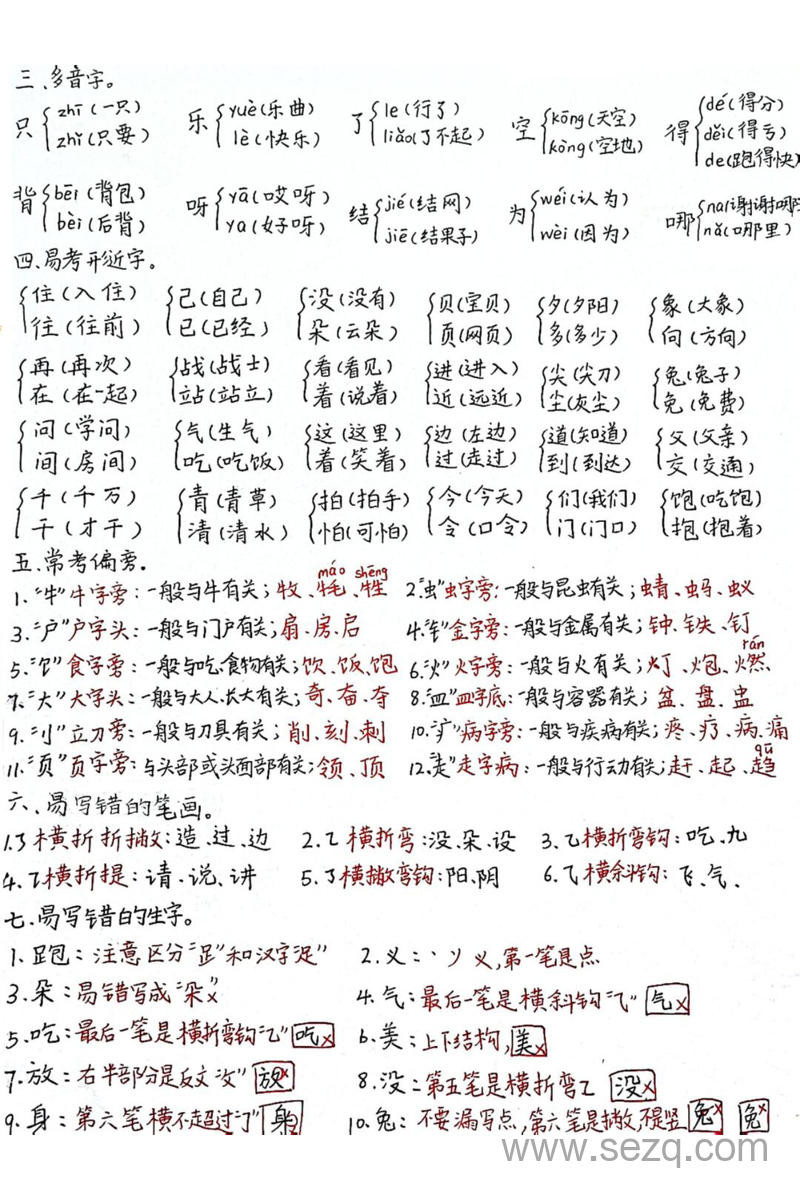 三、多音字。
只{zhī(一只) zhǐ(只要) 乐{yuè(乐曲) lè(快乐) 了{le(行了) liǎo(了不起) 空{kōng(天空) kòng(空地) 得{dé(得分) děi(得亏) de(跑得快)
背{bēi(背包) bèi(后背) 呀{yā(哎呀) ya(好呀) 结{jié(结网) jiē(结果子) 为{wéi(认为) wèi(因为) 哪{na(谢谢哪 nǎ(哪里)
四、易考形近字。
{住(入住) {己(自己) {没(没有) {贝(宝贝) {夕(夕阳) {象(大象)
往(往前) 已(已经) 朵(云朵) 页(网页) 多(多少) 向(方向)
{再(再次) {战(战士) {看(看见) {进(进入) {尖(尖刀) {兔(兔子)
在(在一起) 站(站立) 着(说着) 近(远近) 尘(灰尘) 免(免费)
{问(学问) {气(生气) {这(这里) {边(左边) {道(知道) {父(父亲)
间(房间) 吃(吃饭) 着(笑着) 过(走过) 到(到达) 交(交通)
{千(千万) {青(青草) {拍(拍手) {今(今天) {们(我们) {饱(吃饱)
干(才干) 清(清水) 怕(可怕) 令(口令) 门(门口) 抱(抱着)
五、常考偏旁。
máo shēng
1."牜"牛字旁:一般与牛有关;牧、牦、牲 2."虫"虫字旁:一般与昆虫有关;蜻、蚂、蚁
3."户"户字头:一般与门户有关;扇、房、启 4."钅"金字旁:一般与金属有关;钟、铁、钉
rán
5."饣"食字旁:一般与吃、食物有关;饮、饭、饱 6."火"火字旁:一般与火有关;灯、炮、燃
7."大"大字头:一般与大人、长大有关;奇、奋、夺 8."皿"皿字底:一般与容器有关;盆、盘、盅
9."刂"立刀旁:一般与刀具有关;削、刻、刺 10."疒"病字旁:一般与疾病有关;疼、疗、病、痛
qū
11."页"页字旁:与头部或头面部有关;领、顶 12."走"走字病:一般与行动有关;赶、起、趋
六、易写错的笔画。
1.㇋横折折撇:造、过、边 2.㇍横折弯:没、朵、设 3.乙横折弯钩:吃、九
4.㇊横折提:请、说、讲 5.㇌横撇弯钩:阳、阴 6.⺄横斜钩:飞、气、
七、易写错的生字。
1.跑:注意区分"⻊"和汉字"足" 2.义:丶丿义,第一笔是点
3.朵:易错写成"朵×" 4.气:最后一笔是横斜钩"⺄" 气×
5.吃:最后一笔是横折弯钩"乙" 吃× 6.美:上下结构,美×
7.放:右半部分是反文"攵" 放× 8.没:第五笔是横折弯㇍ 没×
9.身:第六笔横不超过"㇆" 身× 10.兔:不要漏写点,第六笔是撇,不是竖 兔× 兔×
www.sezq.com